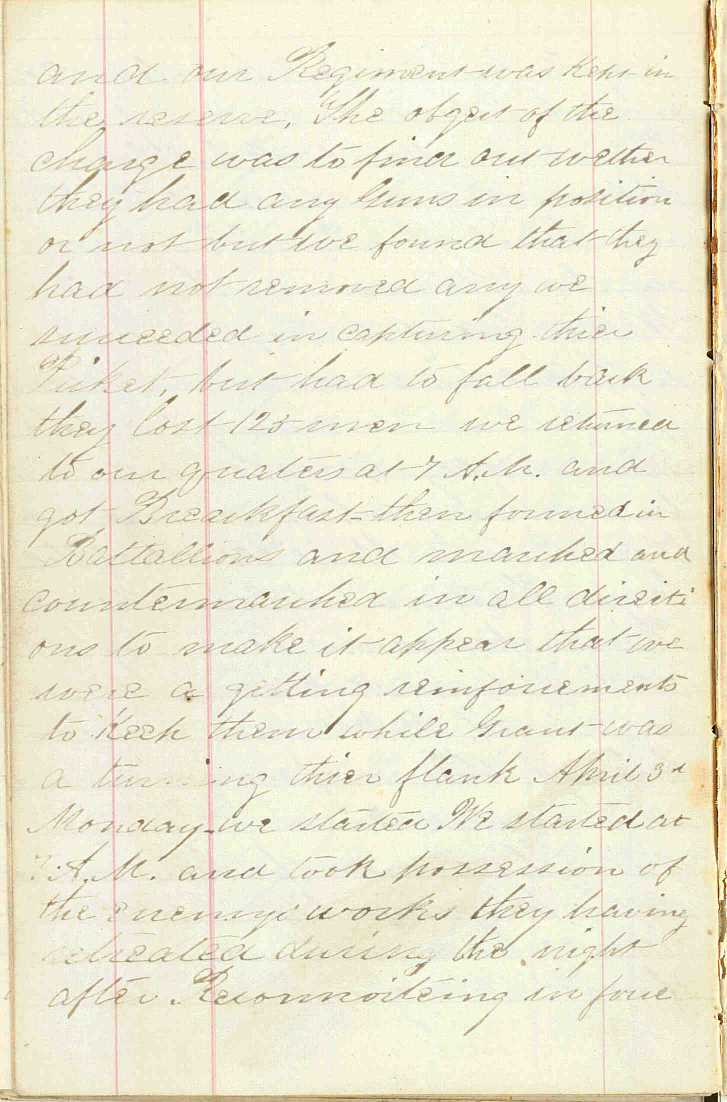 and our Regiment was kept in
the reserve, The obgect of the
charge was to find out wether
they had any Guns in position
or not but we found that they
had not removed any we
suceeded in capturing thier
Picket, but had to fall back
they lost 120 men we returned
to our quaters at 7 A.M. and
got Breackfast then formed in
Battallions and marched and
countermarched in all directi
ons to make it appear that we
were a getting reinforcements
to Keep them while Grant was
a turning thier flank April 3d
Monday we started We started at
A.M. and took possession of
the Enemys works they having
retreated during the night
after Reconnoitering in force